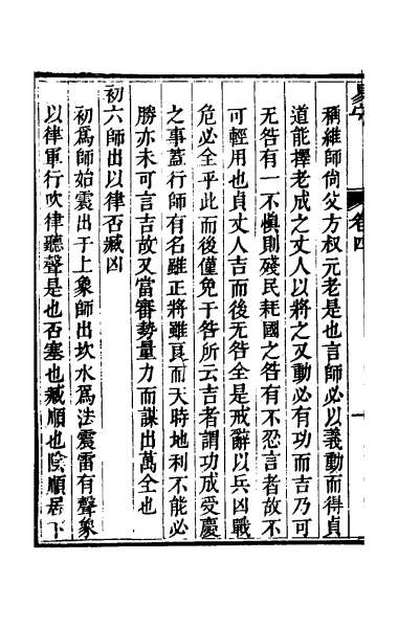 卷四
稱維師尚父方叔元老是也言師必以義動而得貞
道能擇老成之丈人以將之又動必有功而吉乃可
無咎有一不慎則殘民耗國之咎有不忍言者故不
可輕用也貞丈人吉而後无咎全是戒辭以兵凶戰
危必全乎此而後僅免于咎所云吉者謂功成受慶
之事蓋行師有名雖正將雖良而天時地利不能必
勝亦未可言吉故又當審勢量力而謀出萬全也
初六師出以律否臧凶
初爲師始震出于上象師出坎水爲法震雷有聲象
以律軍行吹律聽聲是也否塞也臧順也陰順居下